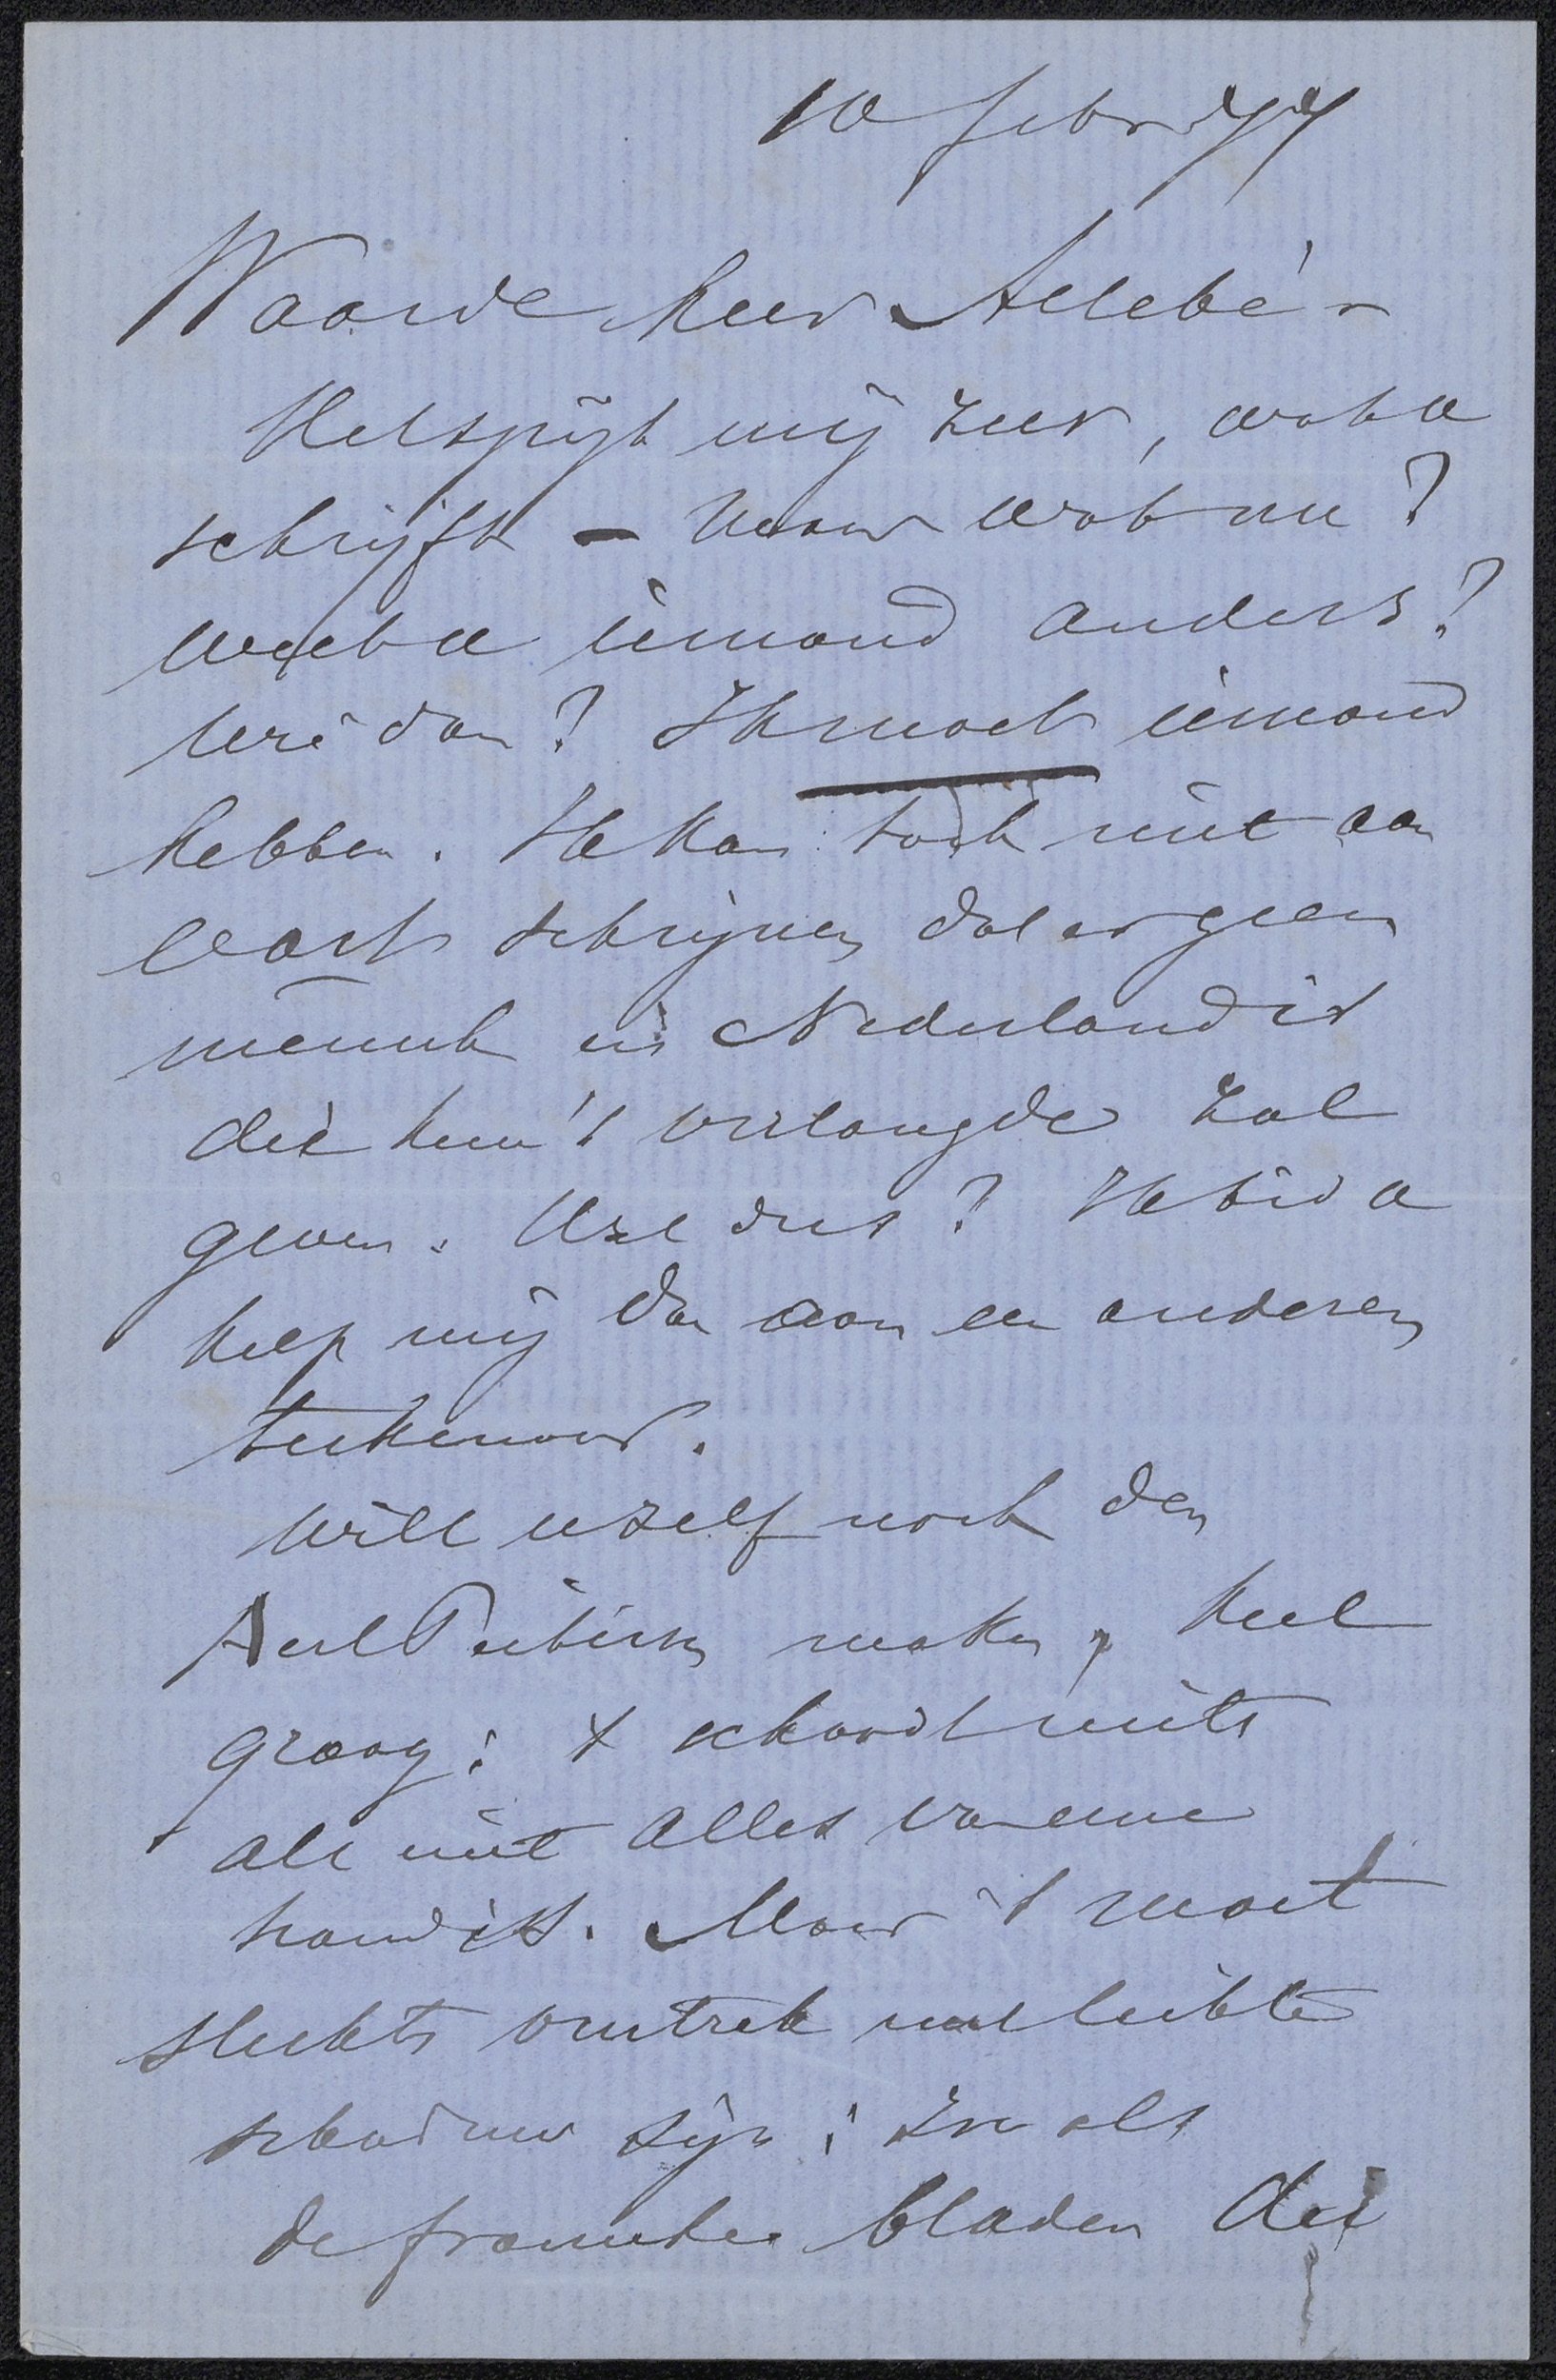 10 febr 77
Waarde heer Allebé -
Het spijt mij zeer, wat u
schrijft - Maar wat nu?
Weet u iemand anders?
Wie dan? Ik moet iemand
hebben. Ik kan toch niet aan
schrijven dat er geen
mensch in Nederland is
die hem 't verlangde zal
geven. Wat dus? Ik bid u
help mij dan aan een anderen
teekenaar.
Wilt u zelf nog den
maken, heel
graag: 't schaadt niets
als niet alles van eene
hand is. Maar 't moet
slechts omtrek met lichte
schaduw zijn; zoo als
de fransche bladen die